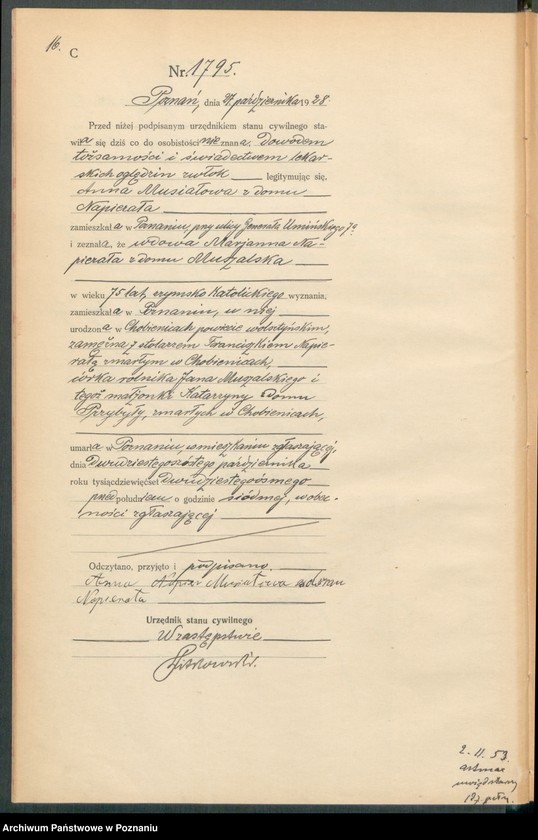 16.
C
Nr. 1795.
Poznań, dnia 27 października 1928.
Przed niżej podpisanym urzędnikiem stanu cywilnego sta-
wiła się dziś co do osobistości nie znana, Dowodem
tożsamości i świadectwem lekar-
skich oględzin zwłok legitymując się,
Anna Musiałowa z domu
Napierała
zamieszkała w Poznaniu przy ulicy Generała Umińskiego 7a
i zeznała, że wdowa Marjanna Na-
pierała z domu Muzalska
w wieku 75 lat, rzymsko katolickiego wyznania,
zamieszkała w Poznaniu, u niej
urodzona w Chobienicach powiecie wolsztyńskim,
zamężna z stolarzem Franciszkiem Napie-
rałą zmarłym w Chobienicach,
córka rolnika Jana Muzalskiego i
tegoż małżonki Katarzyny z domu
Przybyły, zmarłych w Chobienicach,
umarła w Poznaniu w mieszkaniu zgłaszającej,
dnia Dwudziestegoszóstego października
roku tysiącdziewięćset Dwudziestegoósmego
przed południem o godzinie siódmej, w obec-
ności zgłaszającej
Odczytano, przyjęto i podpisano.
Anna Musiałowa z domu
Napierała
Urzędnik stanu cywilnego
W zastępstwie
2. 11. 53.
Archiwum Państwowe w Poznaniu